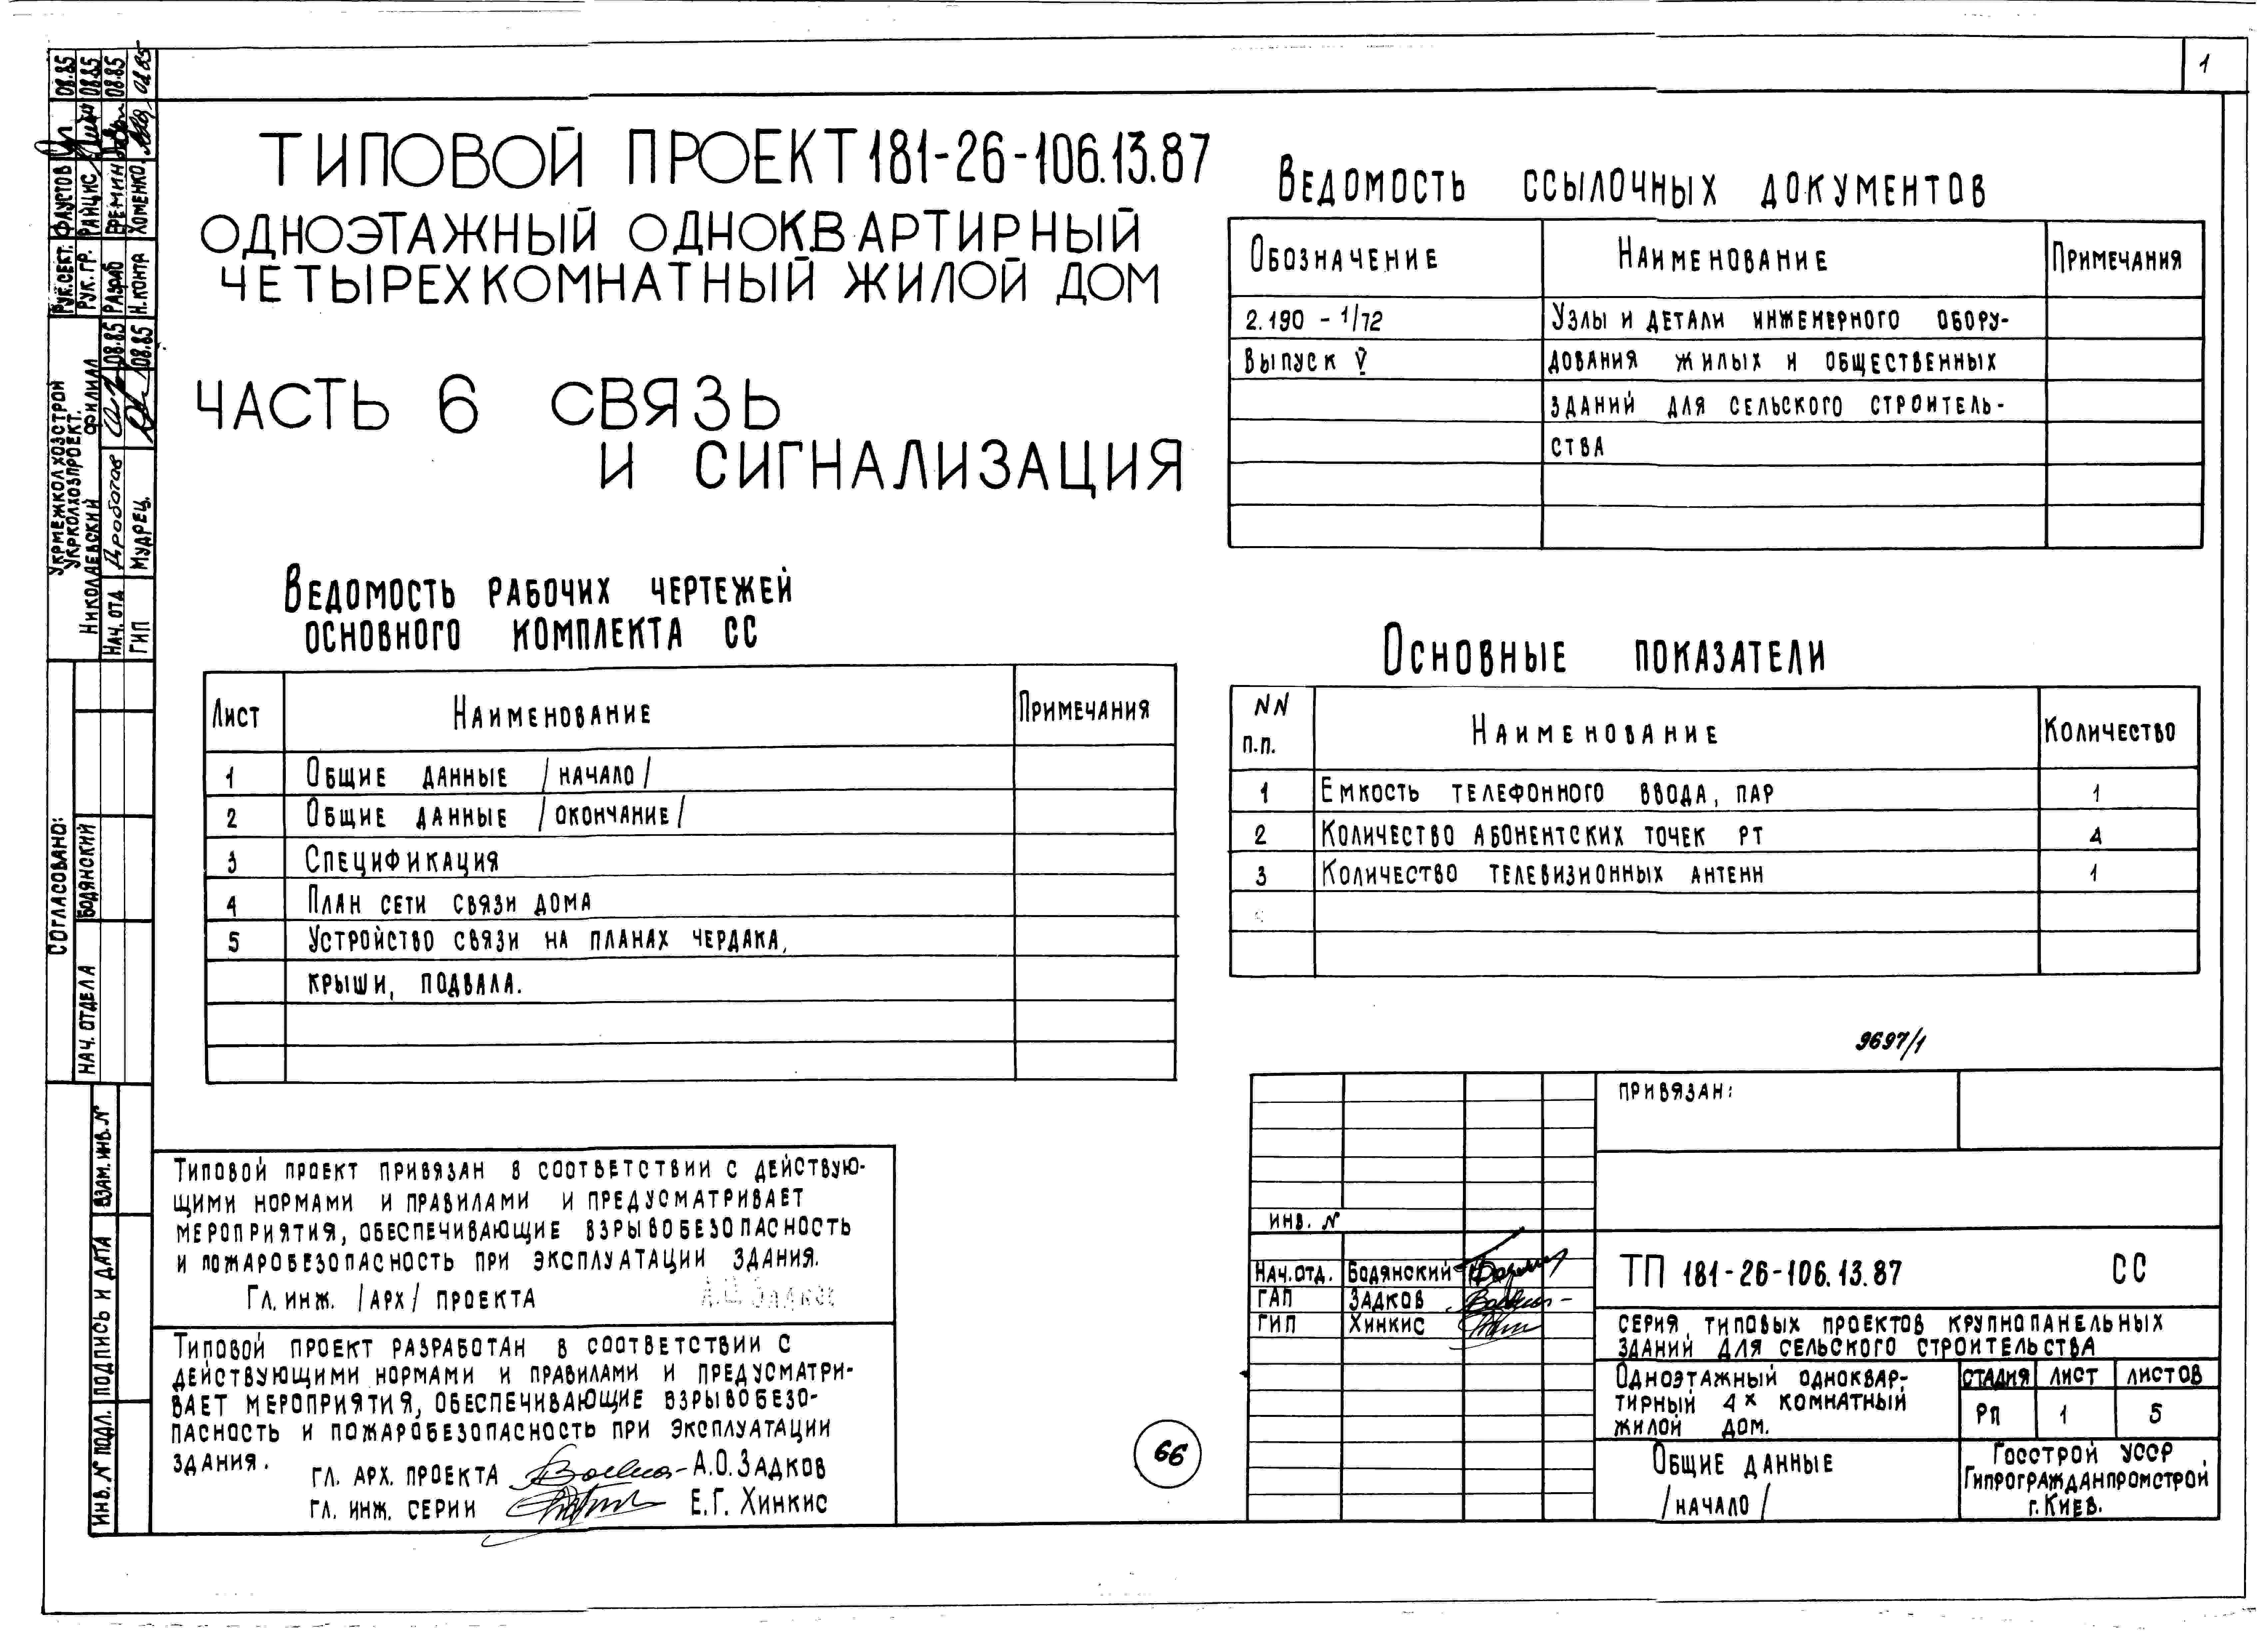 1
ТИПОВОЙ ПРОЕКТ 181-26-106.13.87
ОДНОЭТАЖНЫЙ ОДНОКВАРТИРНЫЙ
ЧЕТЫРЕХКОМНАТНЫЙ ЖИЛОЙ ДОМ
ЧАСТЬ 6 СВЯЗЬ
И СИГНАЛИЗАЦИЯ
ВЕДОМОСТЬ РАБОЧИХ ЧЕРТЕЖЕЙ
ОСНОВНОГО КОМПЛЕКТА СС
ЛИСТ НАИМЕНОВАНИЕ ПРИМЕЧАНИЯ
1 ОБЩИЕ ДАННЫЕ /НАЧАЛО/
2 ОБЩИЕ ДАННЫЕ /ОКОНЧАНИЕ/
3 СПЕЦИФИКАЦИЯ
4 ПЛАН СЕТИ СВЯЗИ ДОМА
5 УСТРОЙСТВО СВЯЗИ НА ПЛАНАХ ЧЕРДАКА,
КРЫШИ, ПОДВАЛА.
ТИПОВОЙ ПРОЕКТ ПРИВЯЗАН В СООТВЕТСТВИИ С ДЕЙСТВУЮ-
ЩИМИ НОРМАМИ И ПРАВИЛАМИ И ПРЕДУСМАТРИВАЕТ
МЕРОПРИЯТИЯ, ОБЕСПЕЧИВАЮЩИЕ ВЗРЫВОБЕЗОПАСНОСТЬ
И ПОЖАРОБЕЗОПАСНОСТЬ ПРИ ЭКСПЛУАТАЦИИ ЗДАНИЯ.
ГЛ. ИНЖ. /АРХ/ ПРОЕКТА
ТИПОВОЙ ПРОЕКТ РАЗРАБОТАН В СООТВЕТСТВИИ С
ДЕЙСТВУЮЩИМИ НОРМАМИ И ПРАВИЛАМИ И ПРЕДУСМАТРИ-
ВАЕТ МЕРОПРИЯТИЯ, ОБЕСПЕЧИВАЮЩИЕ ВЗРЫВОБЕЗО-
ПАСНОСТЬ И ПОЖАРОБЕЗОПАСНОСТЬ ПРИ ЭКСПЛУАТАЦИИ
ЗДАНИЯ.
ГЛ. АРХ. ПРОЕКТА А.О. ЗАДКОВ
ГЛ. ИНЖ. СЕРИИ Е.Г. ХИНКИС
ВЕДОМОСТЬ ССЫЛОЧНЫХ ДОКУМЕНТОВ
ОБОЗНАЧЕНИЕ НАИМЕНОВАНИЕ ПРИМЕЧАНИЯ
2.190 - 1/72 УЗЛЫ И ДЕТАЛИ ИНЖЕНЕРНОГО ОБОРУ-
ВЫПУСК V ДОВАНИЯ ЖИЛЫХ И ОБЩЕСТВЕННЫХ
ЗДАНИЙ ДЛЯ СЕЛЬСКОГО СТРОИТЕЛЬ-
СТВА
ОСНОВНЫЕ ПОКАЗАТЕЛИ
NN
П.П. НАИМЕНОВАНИЕ КОЛИЧЕСТВО
1 ЕМКОСТЬ ТЕЛЕФОННОГО ВВОДА, ПАР 1
2 КОЛИЧЕСТВО АБОНЕНТСКИХ ТОЧЕК РТ 4
3 КОЛИЧЕСТВО ТЕЛЕВИЗИОННЫХ АНТЕНН 1
9697/1
ПРИВЯЗАН:
ИНВ. N
НАЧ. ОТД. БОДЯНСКИЙ
ГАП ЗАДКОВ
ГИП ХИНКИС
ТП 181-26-106.13.87 СС
СЕРИЯ ТИПОВЫХ ПРОЕКТОВ КРУПНОПАНЕЛЬНЫХ
ЗДАНИЙ ДЛЯ СЕЛЬСКОГО СТРОИТЕЛЬСТВА
ОДНОЭТАЖНЫЙ ОДНОКВАР-
ТИРНЫЙ 4Х КОМНАТНЫЙ
ЖИЛОЙ ДОМ.
СТАДИЯ ЛИСТ ЛИСТОВ
РП 1 5
ОБЩИЕ ДАННЫЕ
/НАЧАЛО/
ГОССТРОЙ УССР
ГИПРОГРАЖДАНПРОМСТРОЙ
г. КИЕВ.
66
УКРМЕЖКОЛХОЗСТРОЙ
УКРКОЛХОЗПРОЕКТ.
НИКОЛАЕВСКИЙ ФИЛИАЛ
НАЧ. ОТД 08.85
ГИП МУДРЕЦ. 08.85
РУК. СЕКТ. ФАУСТОВ 08.85
РУК. ГР. РАЙЦИС 08.85
РАЗРАБ 08.85
Н. КОНТР ХОМЕНКО.
СОГЛАСОВАНО:
НАЧ. ОТДЕЛА БОДЯНСКИЙ
ИНВ. N ПОДЛ. ПОДПИСЬ И ДАТА ВЗАМ. ИНВ. N